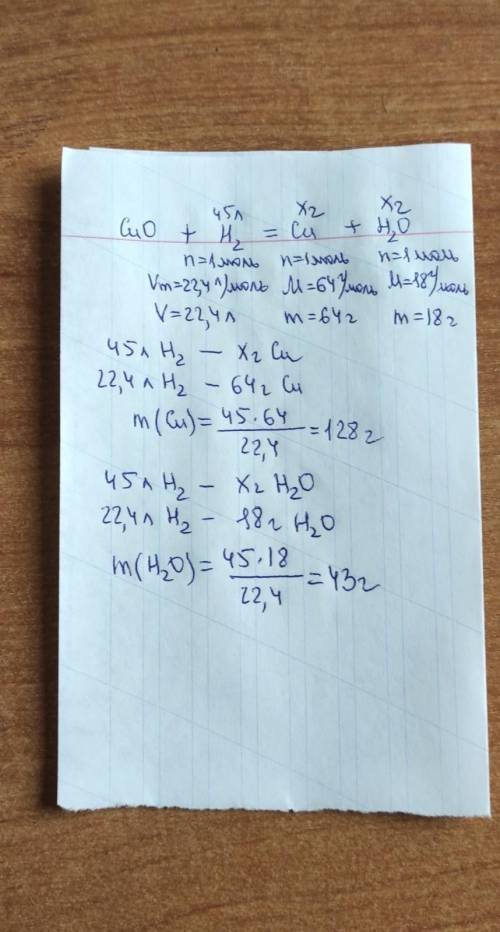 45л xг xг
CuO + H₂ = Cu + H₂O
n=1моль n=1моль n=1моль
Vm=22,4 л/моль M=64 г/моль M=18 г/моль
V=22,4л m=64г m=18г
45л H₂ — xг Cu
22,4л H₂ — 64г Cu
m(Cu) = 45·64 / 22,4 = 128г
45л H₂ — xг H₂O
22,4л H₂ — 18г H₂O
m(H₂O) = 45·18 / 22,4 = 43г